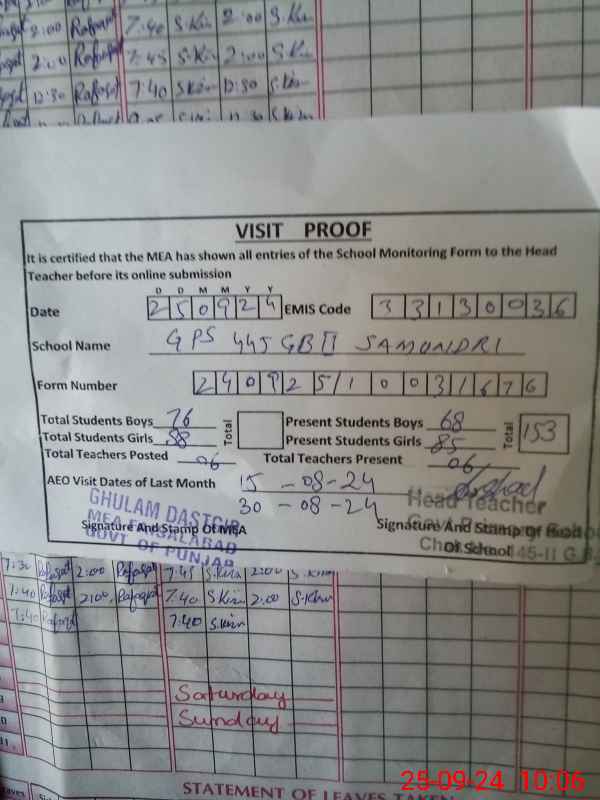 2:00 Rafaqat 7:40 S.Kin 2:00 S.Kin
2:00 Rafaqat 7:45 S.Kin 2:00 S.Kin
12:30 Rafaqat 7:40 S.Kin 12:30 S.Kin
VISIT PROOF
It is certified that the MEA has shown all entries of the School Monitoring Form to the Head
Teacher before its online submission
D D M M Y Y
Date 250924 EMIS Code 33130036
School Name GPS 445 GB II SAMUNDRI
Form Number 240925/10031676
Total Students Boys 76 Total Present Students Boys 68 Total 153
Total Students Girls 88 Present Students Girls 85
Total Teachers Posted 06 Total Teachers Present 06
AEO Visit Dates of Last Month 15-08-24
30-08-24 Head Teacher
GHULAM DASTGIR
Signature And Stamp Of MEA Signature And Stamp Of Head
MEA FAISALABAD
GOVT OF PUNJAB Of School 45-II G.B
7:30 Rafaqat 2:00 Rafaqat 7:45 S.Kin 2:00 S.Kin
7:40 Rafaqat 2:00 Rafaqat 7:40 S.Kin 2:00 S.Kin
7:40 Rafaqat 7:40 S.Kin
Saturday
Sunday
STATEMENT OF LEAVES TAKEN
25-09-24 10:06